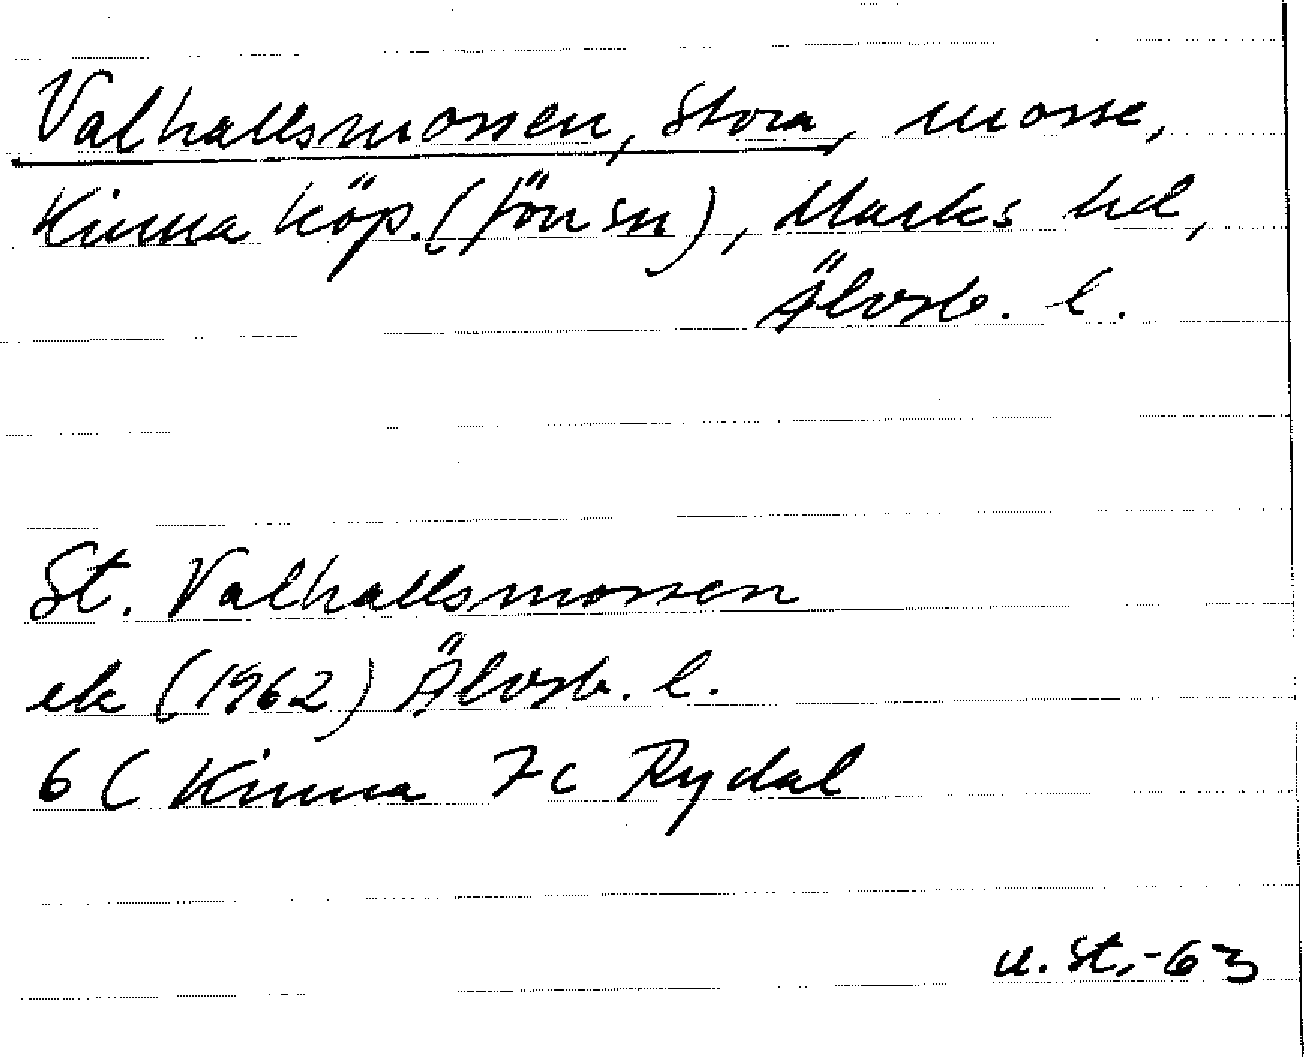 Valhallsmossen, Stora, mosse,
Kinna köp. (förr sn), Marks hd,
Älvsb. l.
St. Valhallsmossen
ek (1962) Älvsb. l.
6 C Kinna 7c Rydal
U. St. -63